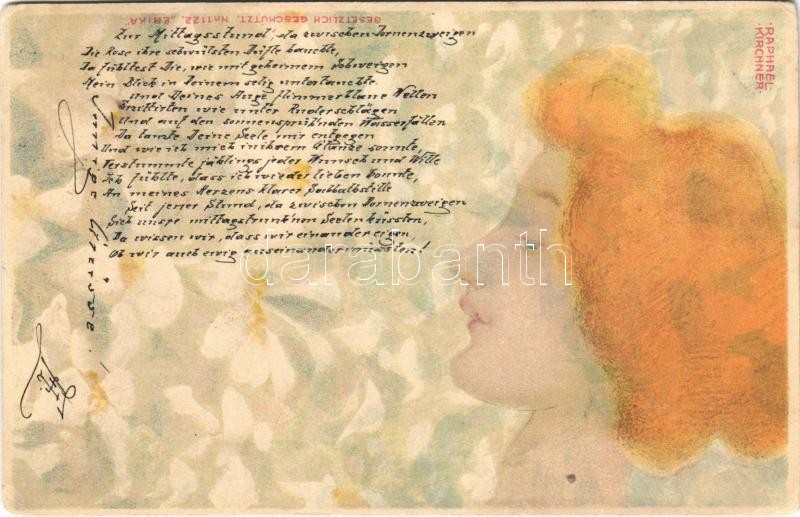 GESETZLICH GESCHÜTZT. No 1122. "ERIKA"
RAPHAEL
KIRCHNER
Zur Mittagsstund', da zwischen Dornenzweigen
Die Rose ihre schwülsten Düfte hauchte,
Da fühltest Du, wie mit geheimem Schweigen
Mein Blick in Deinem selig untertauchte
Und Deines Auge flimmerblaue Wellen
Erzitterten wie unter Ruderschlägen
Und auf den sonnensprüh'nden Wasserfällen
Da tanzte Deine Seele mir entgegen
Und wie ich mich in ihrem Glanze sonnte,
Verstummte jählings jeder Wunsch und Wille
Ich fühlte, dass ich wieder lieben konnte,
An meines Herzens klarer Sabbathstille
Seit jener Stund, da zwischen Dornenzweigen
Sich unsre mittagstrunk'nen Seelen küssten,
Da wissen wir, dass wir einander eigen
Ob wir auch ewig auseinander müssten!
Innige Grüsse!
darabanth